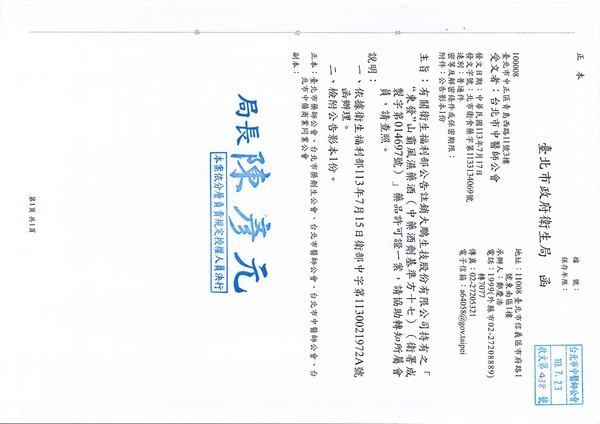 正本
檔　號：
保存年限：
臺北市政府衛生局　函
10008
臺北市中正區青島西路11號3樓
受文者：台北市中醫師公會
地址：11008 臺北市信義區市府路1
號東南區1樓
電話：1999(外縣市02-27208889)
轉7077
傳真：02-27205321
電子信箱：a64058@gov.taipei
發文日期：中華民國113年7月17日
發文字號：北市衛食藥字第1133134069號
速別：普通件
密等及解密條件或保密期限：
附件：公告影本1份
主旨：有關衛生福利部公告註銷大鵬生技股份有限公司持有之「
"東發"山霸風濕藥酒（中藥酒劑基準方十七）（衛署成
製字第014697號）」藥品許可證一案，請協助轉知所屬會
員，請查照。
說明：
一、依據衛生福利部113年7月15日衛部中字第1130021972A號
函辦理。
二、檢附公告影本1份。
正本：臺北市藥師公會、台北市藥劑生公會、台北市醫師公會、台北市中醫師公會、台
北市中藥商業同業公會
副本：
局長 陳彥元
本案依分層負責規定授權人員決行
台北市中醫師公會
113.7.23
收文第438號
第1頁 共1頁